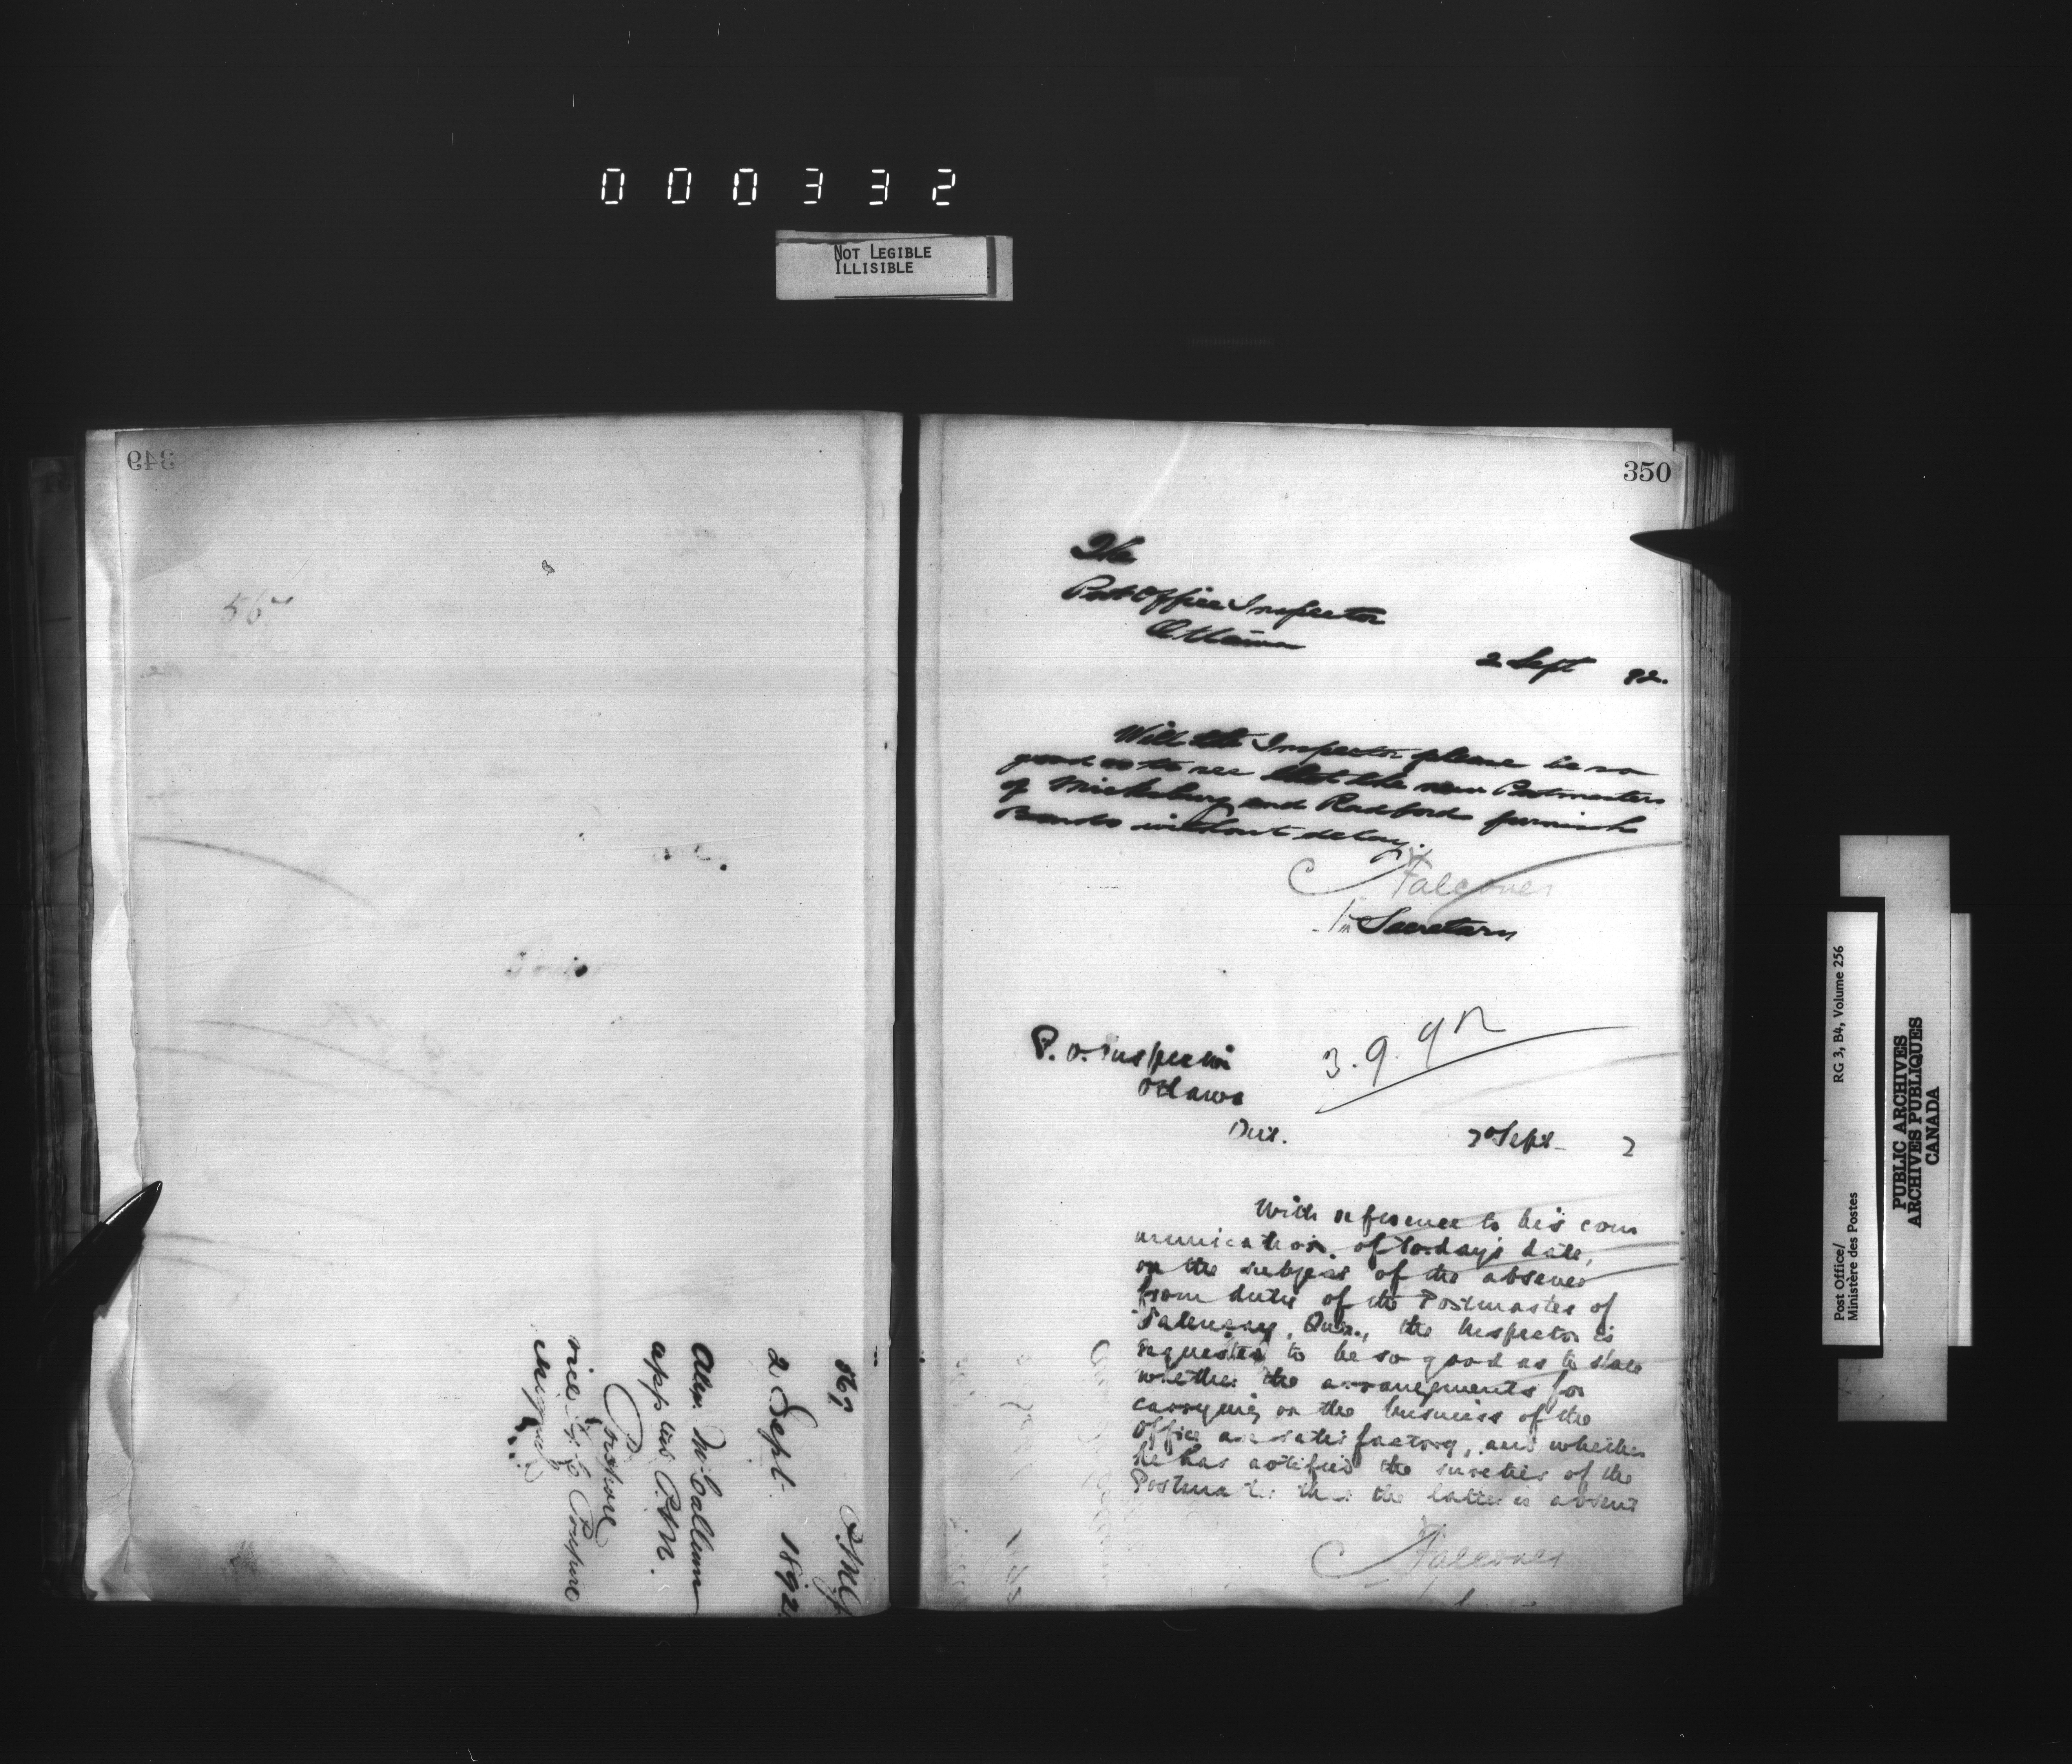 000332
NOT LEGIBLE
ILLISIBLE
349
567
567
2 Sept. 1892
Alex. McCallum
app as P.M.
vice
350
The
Post Office Inspector
Ottawa
2 Sept 92.
Will the Inspector please be so
good as to see that the new Postmasters
of Micksburg and Radford furnish
Bonds without delay.
Falconer
for Secretary
P. O. Inspector
Ottawa
3.9.92
Div.
2 Sept 2
With reference to his com
munication of to-day's date,
on the subject of the absence
from duty of the Postmaster of
Que., the Inspector is
requested to be so good as to state
whether the arrangements for
carrying on the business of the
Office are satisfactory, and whether
he has notified the sureties of the
Postmaster that the latter is absent
Falconer
Post Office/
Ministère des Postes
RG 3, B4, Volume 256
PUBLIC ARCHIVES
ARCHIVES PUBLIQUES
CANADA